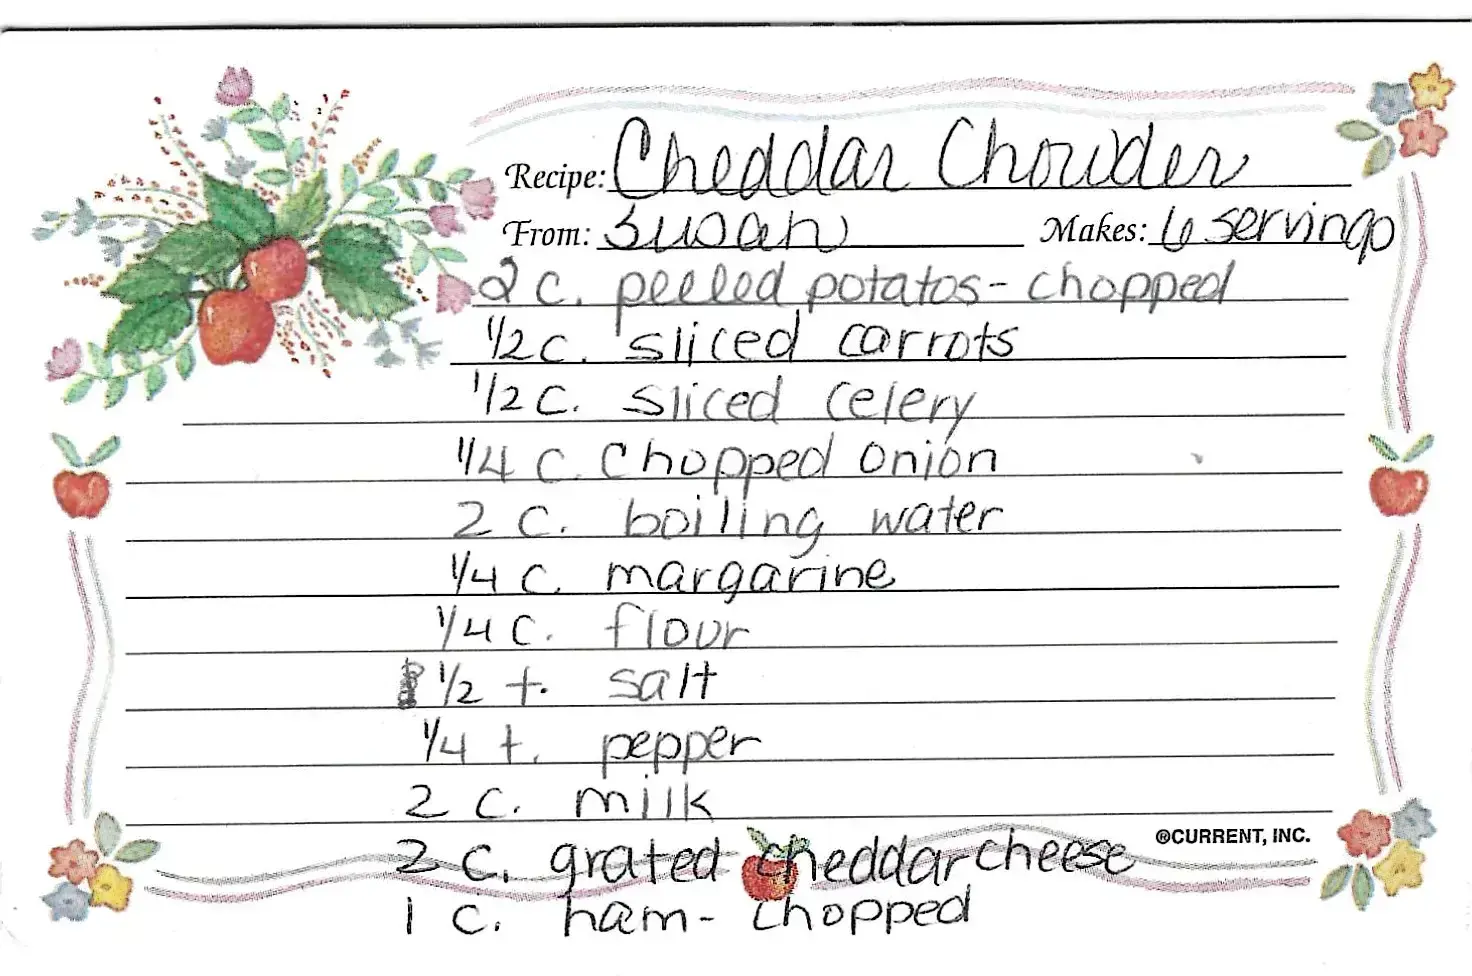 Recipe: Cheddar Chowder
From: Susan Makes: 6 servings
2 c. peeled potatos - chopped
1/2 c. sliced carrots
1/2 c. sliced celery
1/4 c. chopped onion
2 c. boiling water
1/4 c. margarine
1/4 c. flour
1/2 t. salt
1/4 t. pepper
2 c. milk
©CURRENT, INC.
2 c. grated cheddar cheese
1 c. ham - chopped